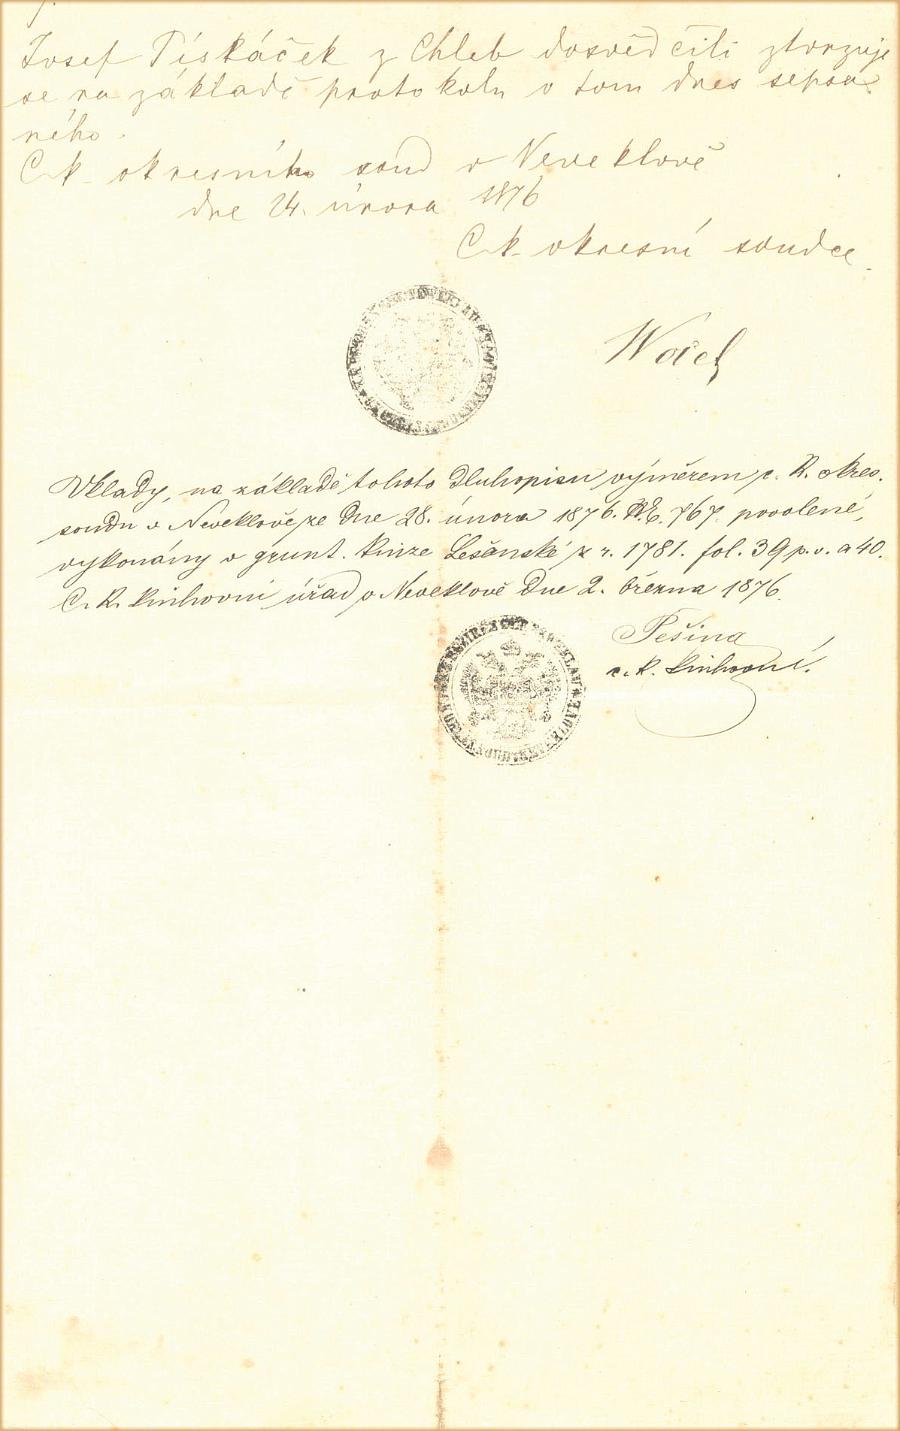 Josef Pískáček z Chleb dosvědčili stvrzuje
se na základě protokolu o tom dnes sepsa-
ného.
C. k. okresního soud v Neveklově
dne 24. února 1876
C. k. okresní soudce.
Wocel
Vklady, na základě tohoto dluhopisu výměrem c. k. okres.
soudu v Neveklově ze dne 28. února 1876. č. 767. povolené,
vykonány v grunt. knize Lešanské z r. 1781. fol. 39 p. v. a 40.
C. k. knihovní úřad v Neveklově dne 2. března 1876.
Pešina
c. k. knihovní.